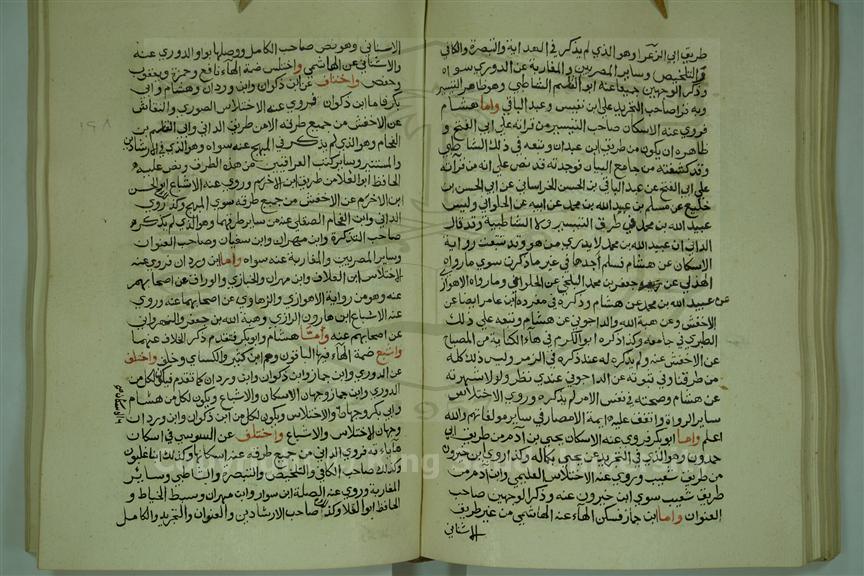 طريق ابي الزعرا وهو الذي لم يذكر في الهداية والتبصرة والكافي
والتلخيص وساير المصريين والمغاربة عن الدوري سواه
وذكر الوجهين جميعا عنه ابو القسم الشاطبي وهو ظاهر التيسير
وبه قرا صاحب التجريد على ابن نفيس وعبد الباقي واما هشام
فروي عنه الاسكان صاحب التيسير من قراته علي ابي الفتح و
ظاهره ان يكون من طريق ابن عبدان وتبعه في ذلك الشاطبي
وقد كشفته من جامع البيان فوجدته قد نص علي انه من قراته
علي ابي الفتح عن عبد الباقي بن الحسن الخراساني عن ابي الحسن بن
خليع عن مسلم بن عبيد الله بن محمد عن ابيه عن الحلواني وليس
عبيد الله بن محمد في طرق التيسير ولا الشاطبية وقد قال
الداني ان عبيد الله بن محمد لا يدري من هو وقد تتبعت رواية
الاسكان عن هشام فلم اجدها في غير ما ذكرت سوي ما رواه
الهذلي عن جعفر بن محمد البلخي عن الحلواني وما رواه الاهوازي
عن عبيد الله بن محمد عن هشام وذكره في مفردة ابن عامر ايضا عن
الاخفش وعن هبة الله والداجوني عن هشام وتبعه علي ذلك
الطبري في جامعه وكذا ذكره ابو الكرم في هاء الكناية من المصباح
عن الاخفش عنه ولم يذكره له عند ذكره في الزمر وليس ذلك كله
من طرقنا وفي ثبوته عن الداجوني عندي نظر ولولا شهرته
عن هشام وصحته في نفس الامر لم نذكره وروي الاختلاس
ساير الرواة واتفق عليه ايمة الامصار في ساير مولفاتهم والله
اعلم واما ابو بكر فروي عنه الاسكان يحيي بن آدم من طريق ابي
حمدون وهو الذي في التجريد عن يحيي بكماله وكذا روي ابن خيرون
من طريق شعيب وروي عنه الاختلاس العليمي وابن آدم من
طريق شعيب سوي ابن خيرون عنه وذكر الوجهين صاحب
العنوان واما ابن جماز فسكن الهاء عنه الهاشمي من غير طريق
الاشناني
الاشناني وهو نص صاحب الكامل ووصلها بواو الدوري عنه
والاشناني عن الهاشمي واختلس ضمة الهاء نافع وحمزة ويعقوب
وحفص واختلف عن ابن ذكوان وابن وردان وهشام وابي
بكر فاما ابن ذكوان فروي عنه الاختلاس الصوري والنقاش
عن الاخفش من جميع طرقه الا من طريق الداني وابي القسم بن
الفحام وهو الذي لم يذكر في المبهج عنه سواه وهو الذي في الارشادين
والمستنير وساير كتب العراقيين من هذه الطرق ونص عليه
الحافظ ابو العلا من طريق ابن الاخرم وروي عنه الاشباع ابو الحسن
ابن الاخرم عن الاخفش من جميع طرقه سوي المبهج وكذا روي
الداني وابن الفحام الصقلي عنه من ساير طرقهما وهو الذي لم يذكره
صاحب التذكرة وابن مهران وابن سفيان وصاحب العنوان
وساير المصريين والمغاربة عنه سواه واما ابن وردان فروي عنه
الاختلاس ابن العلاف وابن مهران والخبازي والوراق عن اصحابهم
عنه وهو من رواية الاهوازي والرهاوي عن اصحابهما عنه وروي
عنه الاشباع ابن هارون الرازي وهبة الله بن جعفر والنهرواني
عن اصحابهم عنه وامّا هشام وابو بكر فتقدم ذكر الخلاف عنهما
واشبع ضمة الهاء فيها الباقون وهم ابن كثير والكساي وخلف واختلف
عن الدوري وابن جماز وابن ذكوان وابن وردان كما تقدم فيكون لكل من
الدوري وابن جماز وجهان الاسكان والاشباع ويكون لكل من هشام
وابي بكر وجهان والاختلاس ويكون لكل من ابن ذكوان وابن وردان
وجهان الاختلاس والاشباع واختلف عن السوسي في اسكان
هاء ياته فروي الداني من جميع طرقه عنه اسكانها وكذلك ابنا غلبون
وكذلك صاحب الكافي والتلخيص والتبصرة والشاطبي وساير
المغاربة وروي عنه الصلة ابن سوار وابن مهران وسبط الخياط و
الحافظ ابو العلا وكذا صاحب الارشادين والعنوان والتجريد والكامل
والاسكان صح